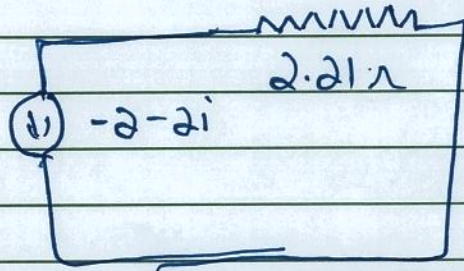 2.21 Ω
-2-2i